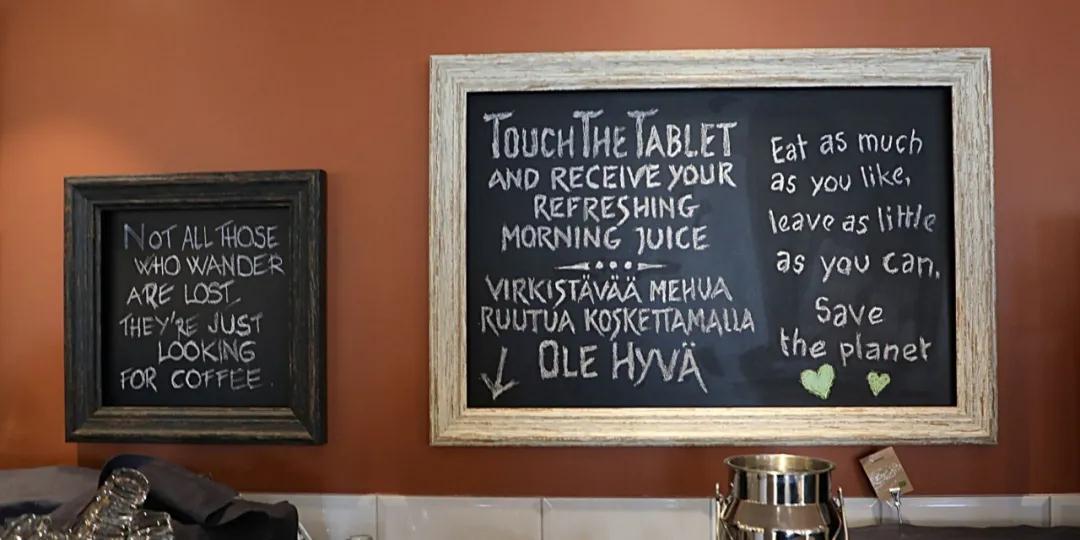 NOT ALL THOSE
WHO WANDER
ARE LOST,
THEY'RE JUST
LOOKING
FOR COFFEE.
TOUCH THE TABLET
AND RECEIVE YOUR
REFRESHING
MORNING JUICE
VIRKISTÄVÄÄ MEHUA
RUUTUA KOSKETTAMALLA
OLE HYVÄ
Eat as much
as you like,
leave as little
as you can.
Save
the planet